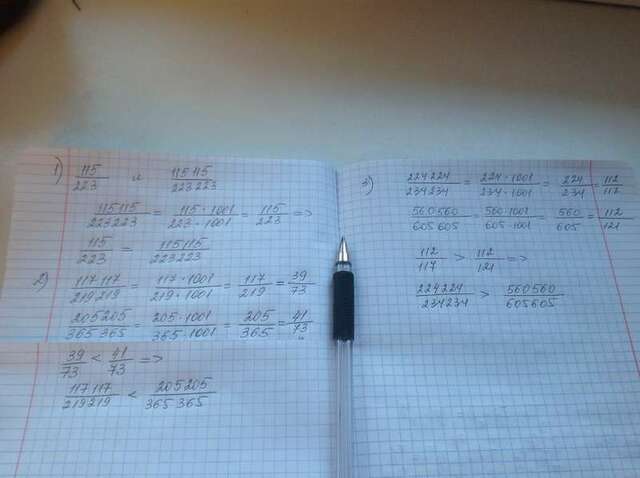 1) 115/223 и 115115/223223
115115/223223 = 115·1001/223·1001 = 115/223 =>
115/223 = 115115/223223
2) 117117/219219 = 117·1001/219·1001 = 117/219 = 39/73
205205/365365 = 205·1001/365·1001 = 205/365 = 41/73
39/73 < 41/73 =>
117117/219219 < 205205/365365
3) 224224/234234 = 224·1001/234·1001 = 224/234 = 112/117
560560/605605 = 560·1001/605·1001 = 560/605 = 112/121
112/117 > 112/121 =>
224224/234234 > 560560/605605